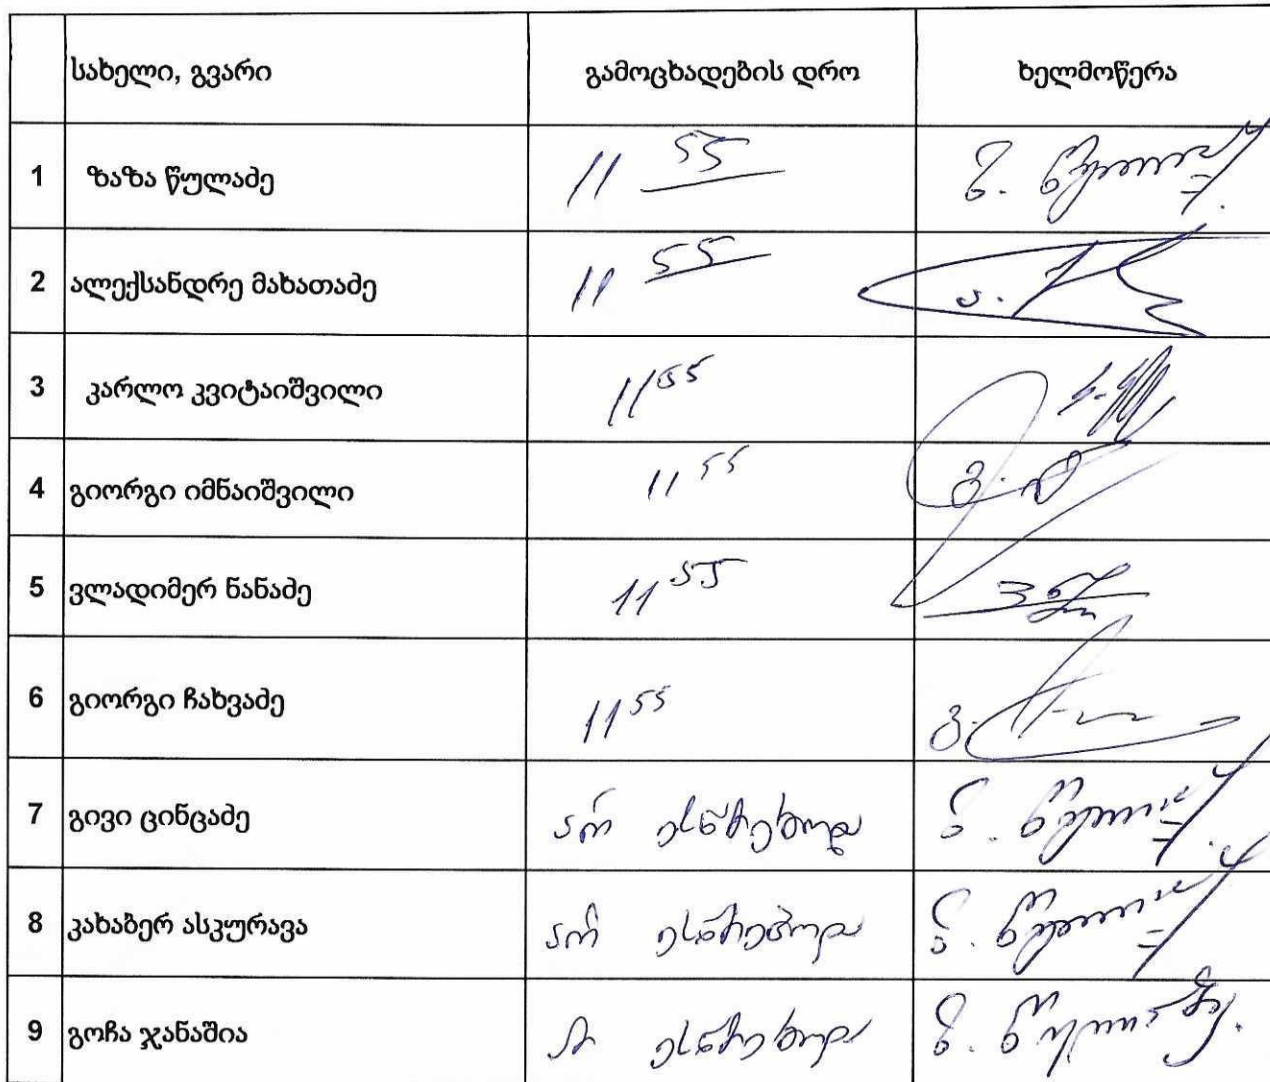 სახელი, გვარი გამოცხადების დრო ხელმოწერა
1 ზაზა წულაძე 11 55 ზ. წულაძე
2 ალექსანდრე მახათაძე 11 55 ა.
3 კარლო კვიტაიშვილი 11 55
4 გიორგი იმნაიშვილი 11 55 გ.
5 ვლადიმერ ნანაძე 11 55
6 გიორგი ჩახვაძე 11 55 გ.
7 გივი ცინცაძე არ ესწრებოდა ზ. წულაძე
8 კახაბერ ასკურავა არ ესწრებოდა ზ. წულაძე
9 გოჩა ჯანაშია არ ესწრებოდა ზ. წულაძე